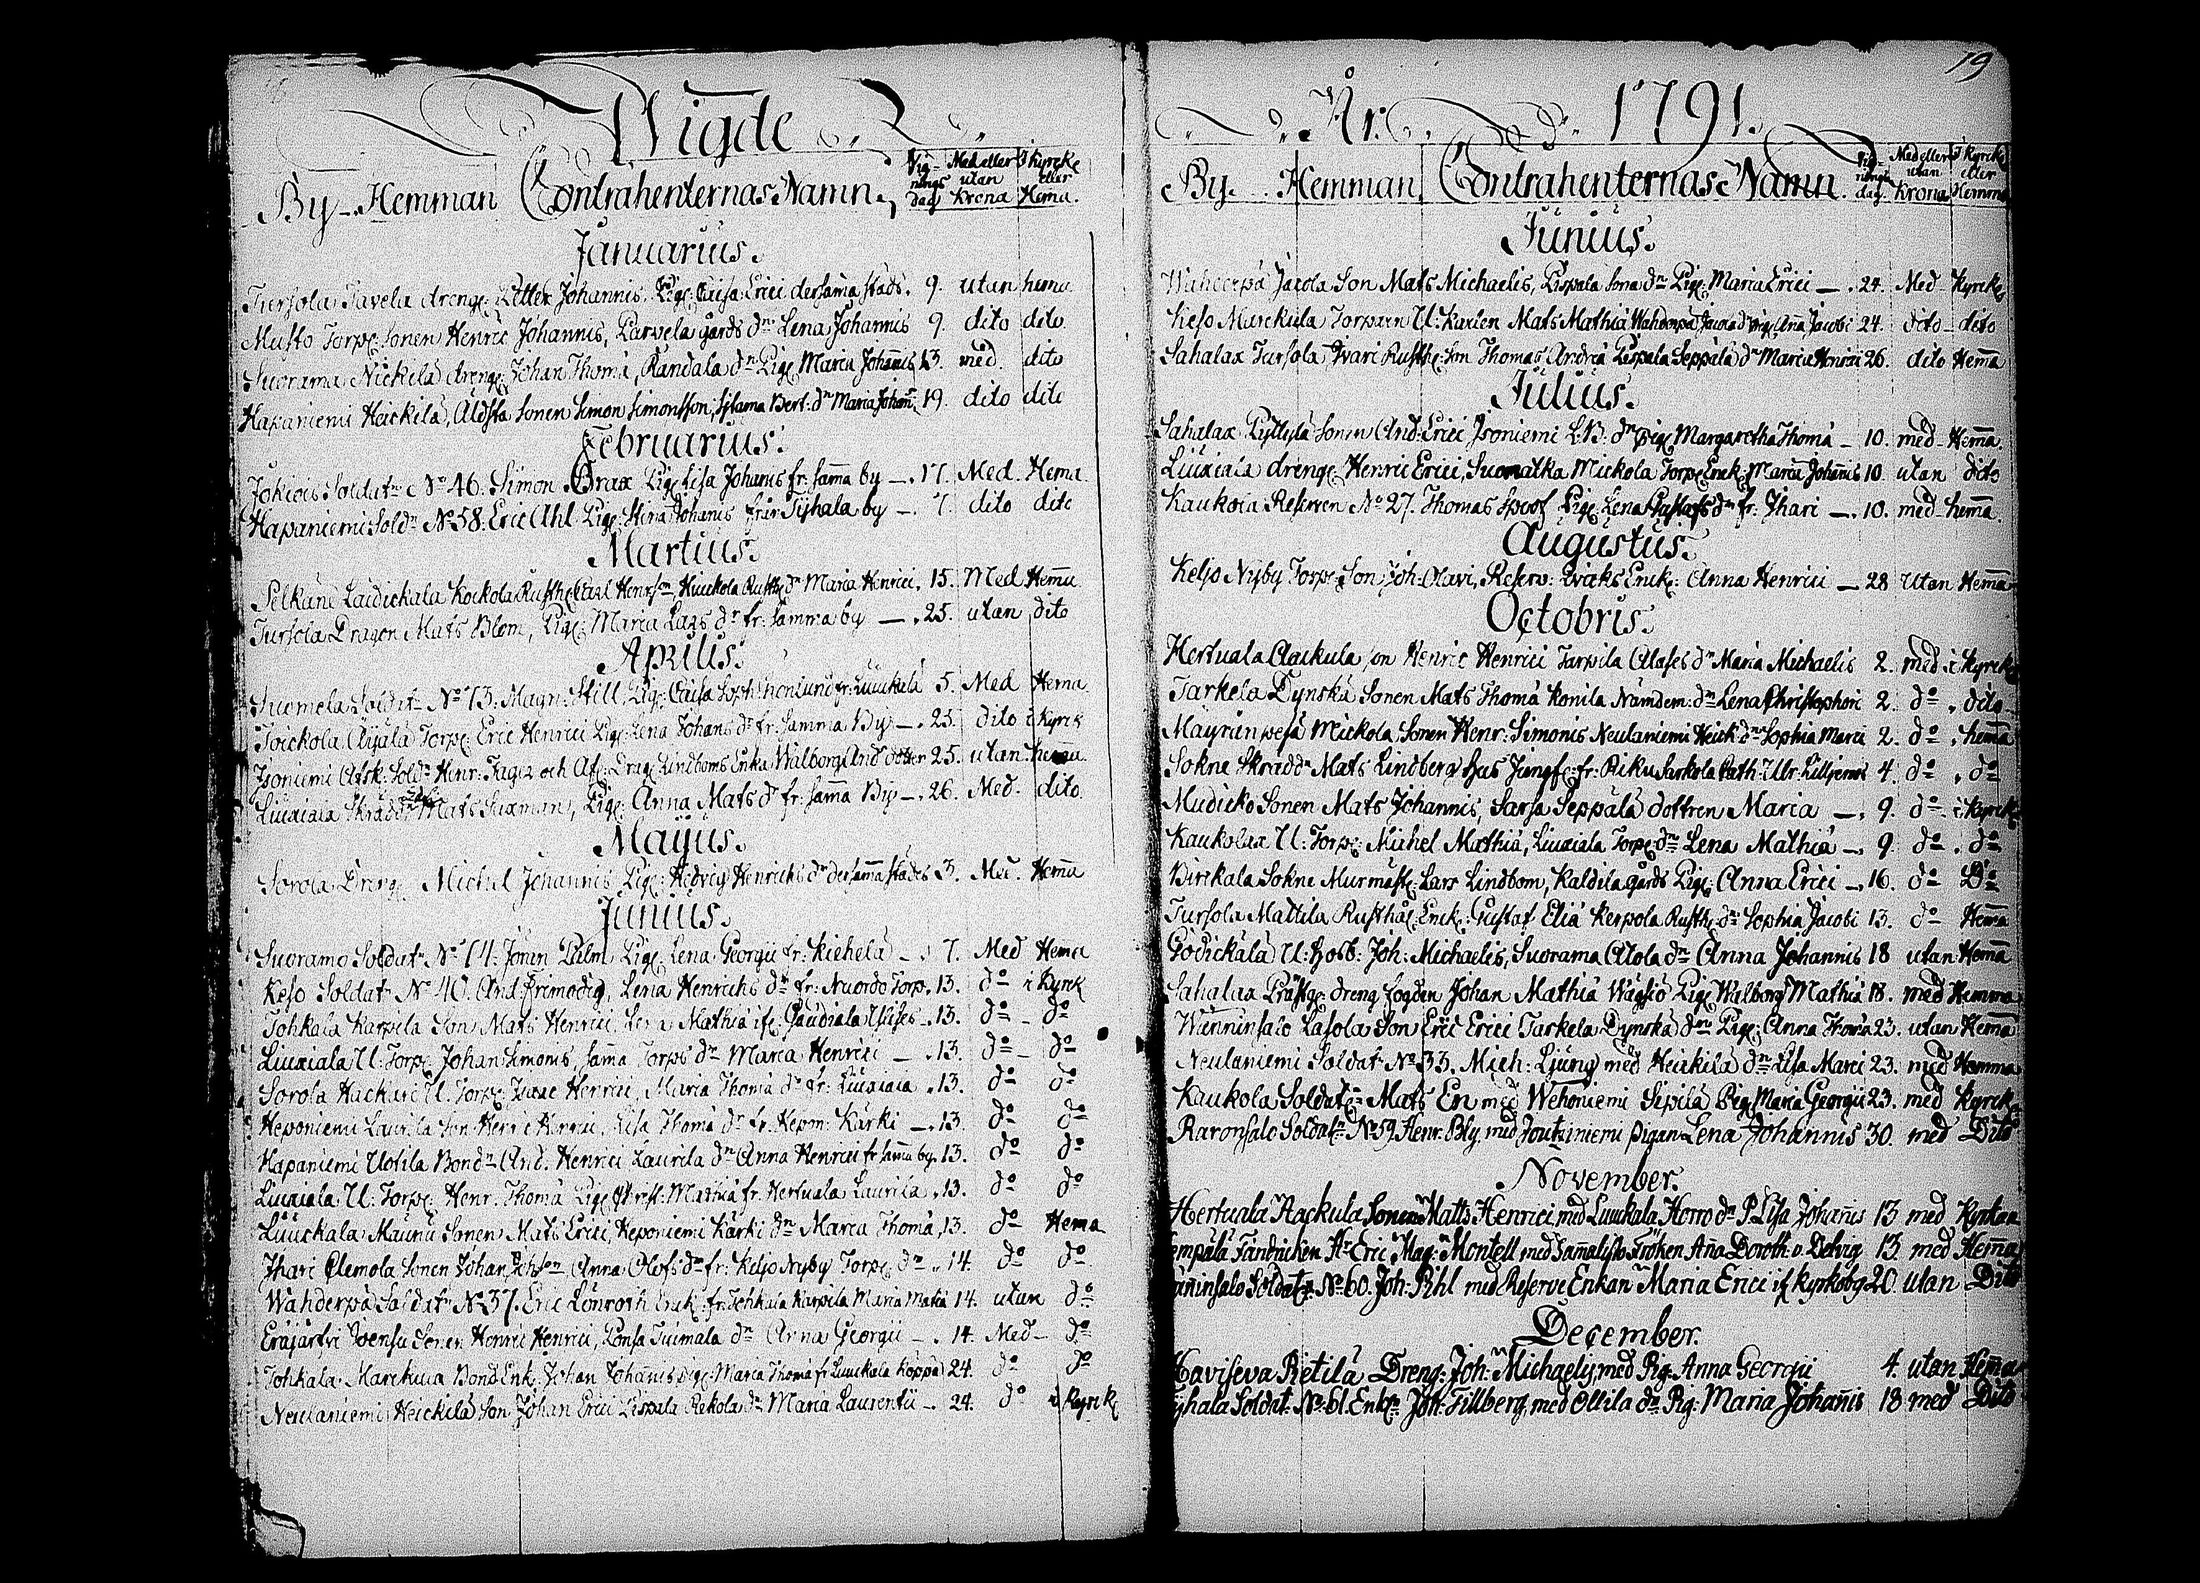 Wigde
By Hemman Contrahenternas Namn Wig- nings dag Med eller utan Krona I Kyrcke eller Hema.
Januarius.
Tursola Tavela drenge: Petter Johannis, Pig: Caisa Erici dersama stads. 9. utan hema
Musto Torp: sonen Henric Johannis, Parvela gårds dr: Lena Johannis 9. dito dito.
Suorama Nickilä drenge Johan Thomæ, Randala dn Pige Maria Johannis 13. med. dito
Hapaniemi Heickilä, Äldsta sonen Simon Simonsson, Maria Johan: 19. dito dito
Februarius.
Jokiois Soldatn No 46. Simon Brax Pige Lisa Johanis fr: samma by — 17. Med. Hema
Hapaniemi Soldn No 58: Eric Ahl Pige: Stina Johanis från Tijhala by — 7. dito dito
Martius.
Pelkäne Laidickala Kockola Rusth: Carl Henrsson, Heickola Rusth: dr Maria Henrici, 15. Med Hemma
Tursola Dragon Mats Blom, Pige: Maria Lars dr fr: samma by — 25. utan dito
Aprilis.
Suomela Soldat No 73. Magn: Still, Pig: Caisa Soph: fr: Luuckala 5. Med Hema
Toickola Äijälä Torp: Eric Henrici Pige Lena Johans dr fr: samma By — 25. dito i Kyrk
Isoniemi Afsk: Soldn Henr: Jager och Afl: Drag: Lindboms Enka Walborg And: dotter 25. utan hema.
Liuxiala Skräddn Mats Suxman, Pige: Anna Mats dr fr: samma By — 26. Med. dito
Mayus.
Sorola Dreng Michel Johannis Pige: Hedvig Henrichs dr dersamma stads 3. Med. Hemma
Junius.
Suoramo Soldatn No 74: Jonen Palm Pige Lena Georgii fr: Kiehelä — 7. Med Hema
Keso Soldat No 40. And: Frimodig, Lena Henrichs dr fr: Nuordo Torp. 13. do i Kyrk
Tohkala Karpila Son Mats Henrici, Lena Mathiæ if: 13. do do
Liuxiala U: Torp: Johan Simonis, samma Torps dr Maria Henrici — 13. do do
Sorola Hackari U. Torp: Isaac Henrici, Maria Thomæ dr fr: Liuxiala 13. do do
Heponiemi Laurila Son Henric Henrici, Lisa Thomæ dr fr. Hepon: Kärki — 13. do do
Hapaniemi Uotila Bondn And. Henrici Laurila dr Anna Henrici fr samma by. 13. do do
Liuxiala U: Torp: Henr. Thomæ Pige Christ: Mathiæ fr. Hertuala Laurila 13. do do
Luuckala Maunu Sonen Mats Erici, Heponiemi Kärki dr Maria Thomæ, 13. do Hema
Ihari Clemola Sonen Johan Johson, Anna Olofs dr fr: Keljo Nyby Torp: dr 14. do do
Wahderpä Soldat No 37. Eric Lönroth Enk: fr. Tohkala Karpila Maria Mathiæ 14. utan do
Eräjärfvi Svensu Sonen Henric Henrici, Ponsa Tuimala dr Anna Georgii — 14. Med do
Tohkala Marckula Bond Enk: Johan Johannis Pige Maria Thomæ fr Luuckala Koppa 24. do do
Neulaniemi Heickilä Son Johan Erici Pispala Rekola dr Maria Laurentii — 24. do i Kyrck
19
År. 1791.
By. Hemman Contrahenternas Namn. Wig- nings dag. Med eller utan Krona I Kyrcke eller Hemma
Junius.
Wahderpä Jacola Son Mats Michaelis, Pispala Sona dn Pige Maria Erici — 24. Med Kyrcke
Keso Marckula Torparn U: Karlen Mats Mathiæ Wahderpä Jacola d: Pige, Anna Jacobi 24. dito dito
Sahalax Tursola Ivari Rusth: Son Thomas Andreæ Pispala Seppälä dr Maria Henrici 26. dito Hemma
Julius.
Sahalax Pyttylä Sonen And: Erici, Isoniemi L:B: dn Pige Margaretha Thomæ — 10. med Hemma
Liuxiala drenge Henric Erici, Suomatka Mickola Torp: Enck: Maria Johannis 10. utan dito
Kaukola Reserven No 27. Thomas Spoof Pige: Lena Gustafs dr fr: Ihari — 10. med hemma.
Augustus.
Keljo Nyby Torp: Son Joh: Olavi, Reserv: Enck: Anna Henrici — 28 utan Hemma
Octobris.
Hertuala Ackula son Henric Henrici Tarpila dr Maria Michaelis 2. med i Kyrcke
Tarkela Dynskä Sonen Mats Thomæ Konila Nämdem: dr Lena Christophori 2. do dito
Mayrunpesä Mickola Sonen Henr: Simonis Neulaniemi Heick: dr Sophia Marci 2. do hemma
Sokne Skräddn Mats Lindberg Hus Jungf: fr: Riku Sarkola Cath: Ulr: Lilljemark 4. do do
Mudicko Sonen Mats Johannis, Sarsa Seppälä dottren Maria — 9. do i Kyrck
Kaukolax U: Torp: Michel Mathiæ, Liuxiala Torp: dr Lena Mathiæ — 9. do do
Birckala Sokne Murmäst: Lars Lindbom, Kaldila gårds Pige: Anna Erici — 16. do Do
Tursola Mattila Rusthål: Enck: Gustaf Eliæ Kerpola Rusth: dr Sophia Jacobi 13. do Hemma
Godickälä U: Hosb: Joh: Michaelis, Suorama Alola dr Anna Johannis 18 utan Hemma
Sahalax Prästge: dreng fogden Johan Mathiæ Pige Walborg Mathiæ 18. med Hemma
Wänninsalo Lasola Son Eric Erici Tarkela Dynskä dr Pige: Anna Thomæ 23. utan Hemma
Neulaniemi Soldat No 33. Mich: Ljung med Heickilä dr Lisa Marci 23. med Hemma
Kaukola Soldatn Mats En med Wehoniemi Sipilä Pig Maria Georgii 23. med Kyrck
Raronsalo Soldatn No 59. Henr: Bly med Joutziniemi Pigan Lena Johannis 30. med Dito
November.
Hertuala Aackula Sonen Matts Henrici med Luuckala Horro dr P. Lisa Johanis 13 med Kyrkan
Fändricken Eric Mag: Montell med Fröken Anna Doroth: v. Delvig 13. med Hemma
Soldat: No 60. Joh: Pihl med Reserve Enkan Maria Erici if Kyrkobg 20. utan Dito
December.
Haviseva Retilä Dreng: Joh: Michaelis, med Pig. Anna Georgii 4. utan Hemma
Tijhala Soldat: No 61. Enkn Joh: Tillberg, med Ollila dr Pig: Maria Johannis 18 med Dito